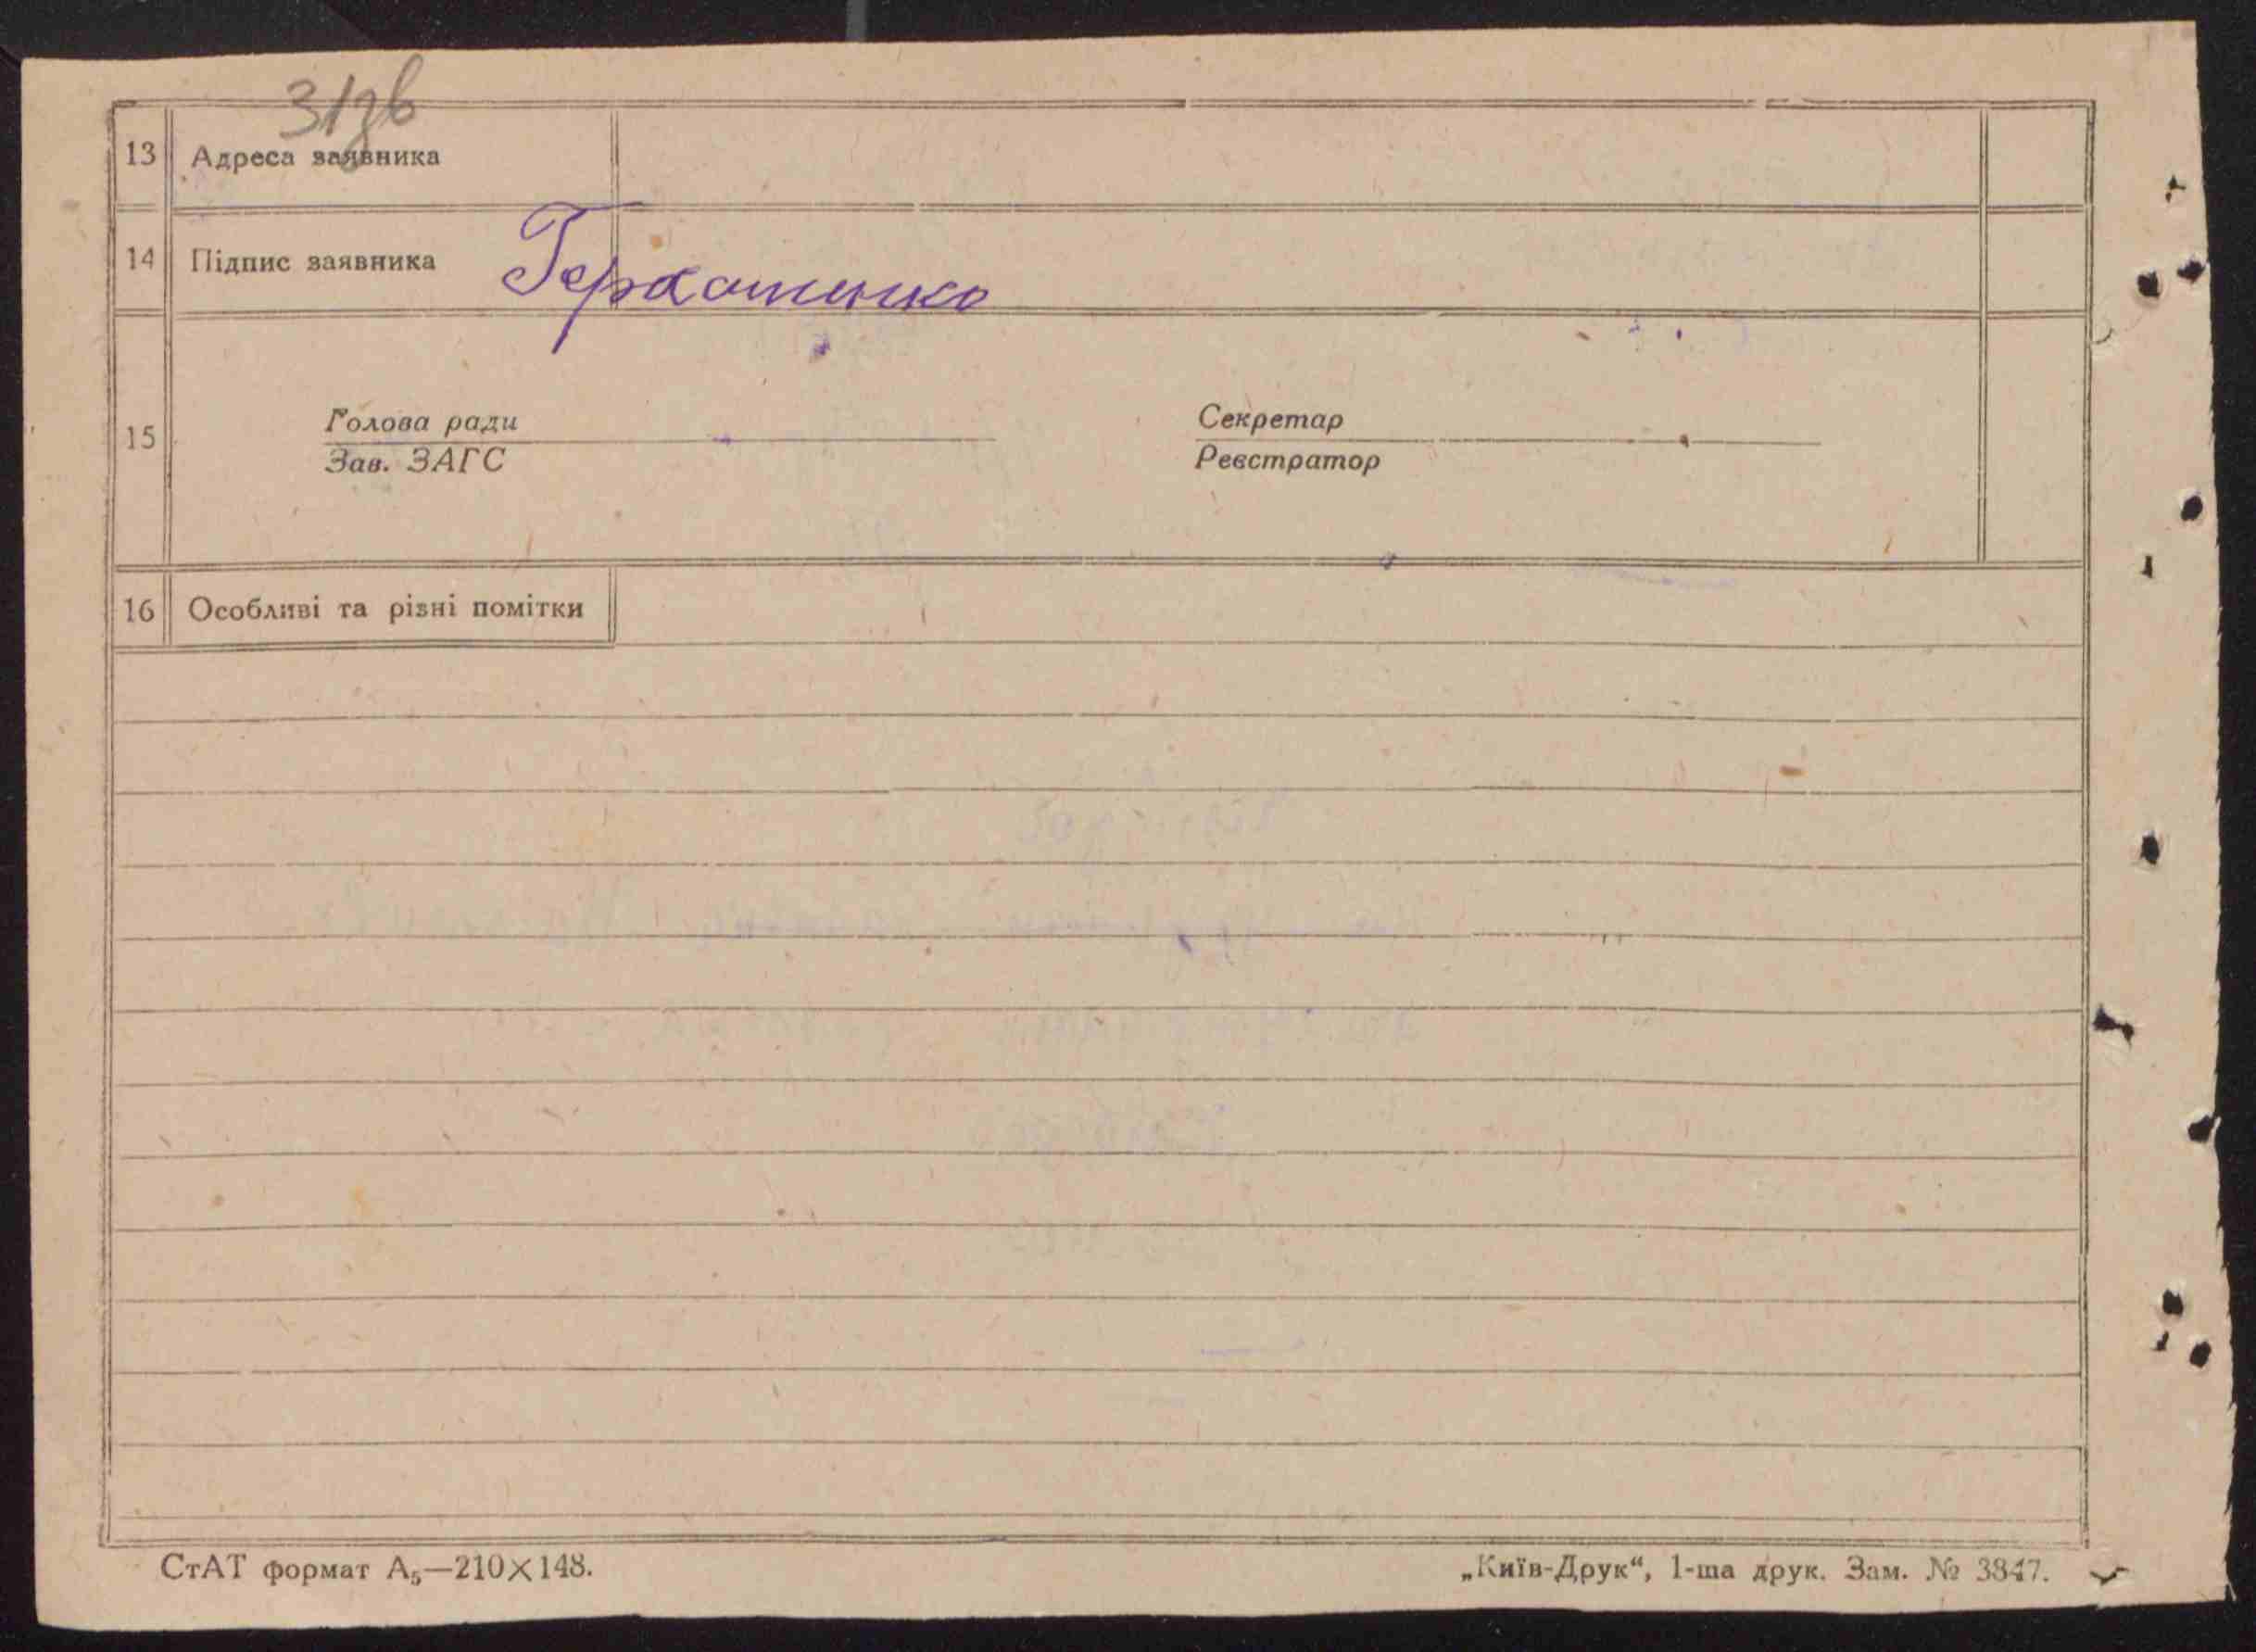 31зв
13 Адреса заявника
14 Підпис заявника
15 Голова ради Секретар
Зав. ЗАГС Реєстратор
16 Особливі та різні помітки
СтАТ формат А₅—210×148. „Київ-Друк“, 1-ша друк. Зам. № 3847.